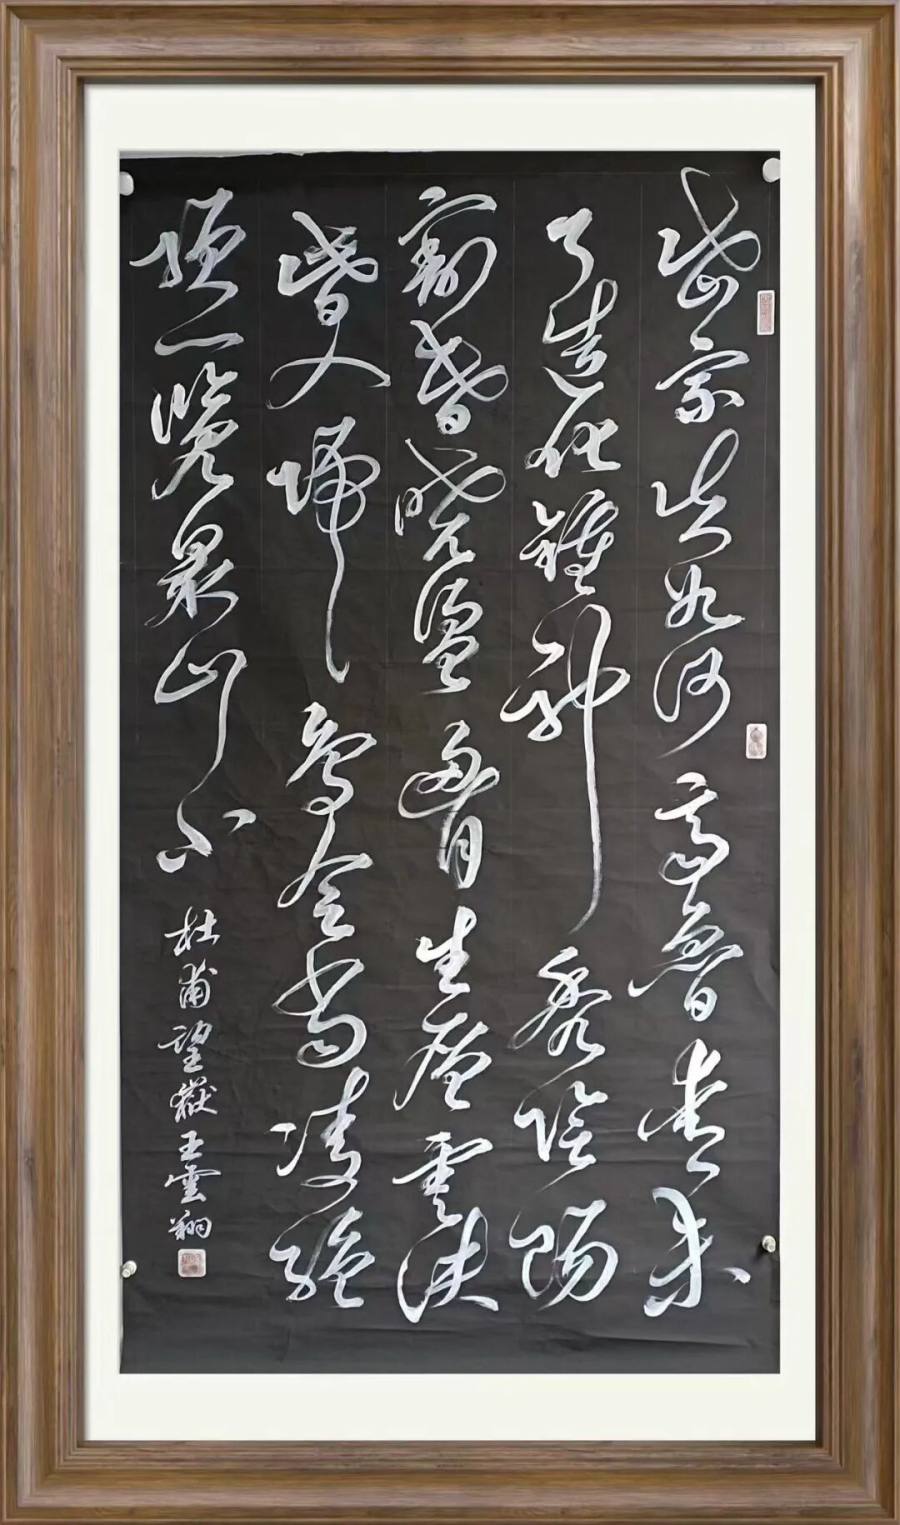 岱宗夫如何齊魯青未
了造化鍾神秀陰陽
割昏曉盪胸生層雲決
眥入歸鳥會當凌絕
頂一覽眾山小
杜甫望嶽王雲翔